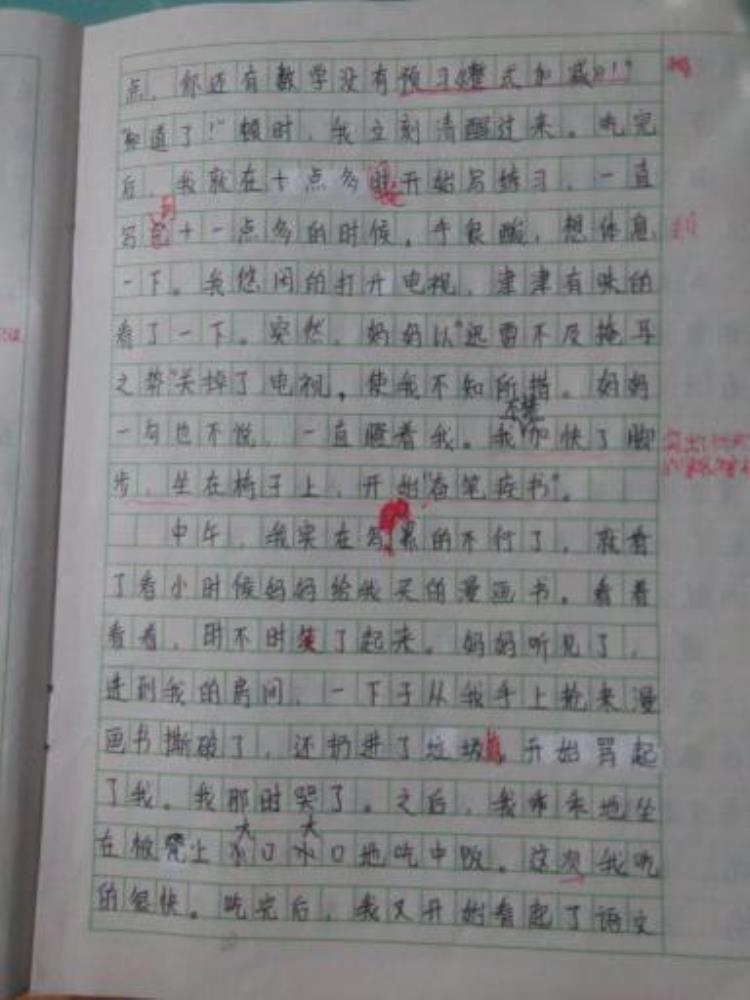 点，你还有数学没有预习《整式和减》！"
"知道了！"顿时，我立刻清醒过来。吃完
后，我就在十点多时开始写练习，一直
写到十一点多的时候，手很酸，想休息
一下。我悠闲的打开电视，津津有味的
看了一下。突然，妈妈以"迅雷不及掩耳
之势"关掉了电视，使我不知所措。妈妈
一句也不说，一直瞪着我。我加快了脚
步，坐在椅子上，开始"奋笔疾书"。
中午，我实在写累的不行了，就看
了看小时候妈妈给我买的漫画书。看着
看着，时不时笑了起来。妈妈听见了，
进到我的房间，一下子从我手上抢来漫
画书撕破了，还扔进了垃圾 开始骂起
了我。我那时哭了。之后，我乖乖地坐
在板凳上大口大口地吃中饭。这次我吃
的很快。吃完后，我又开始看起了语文